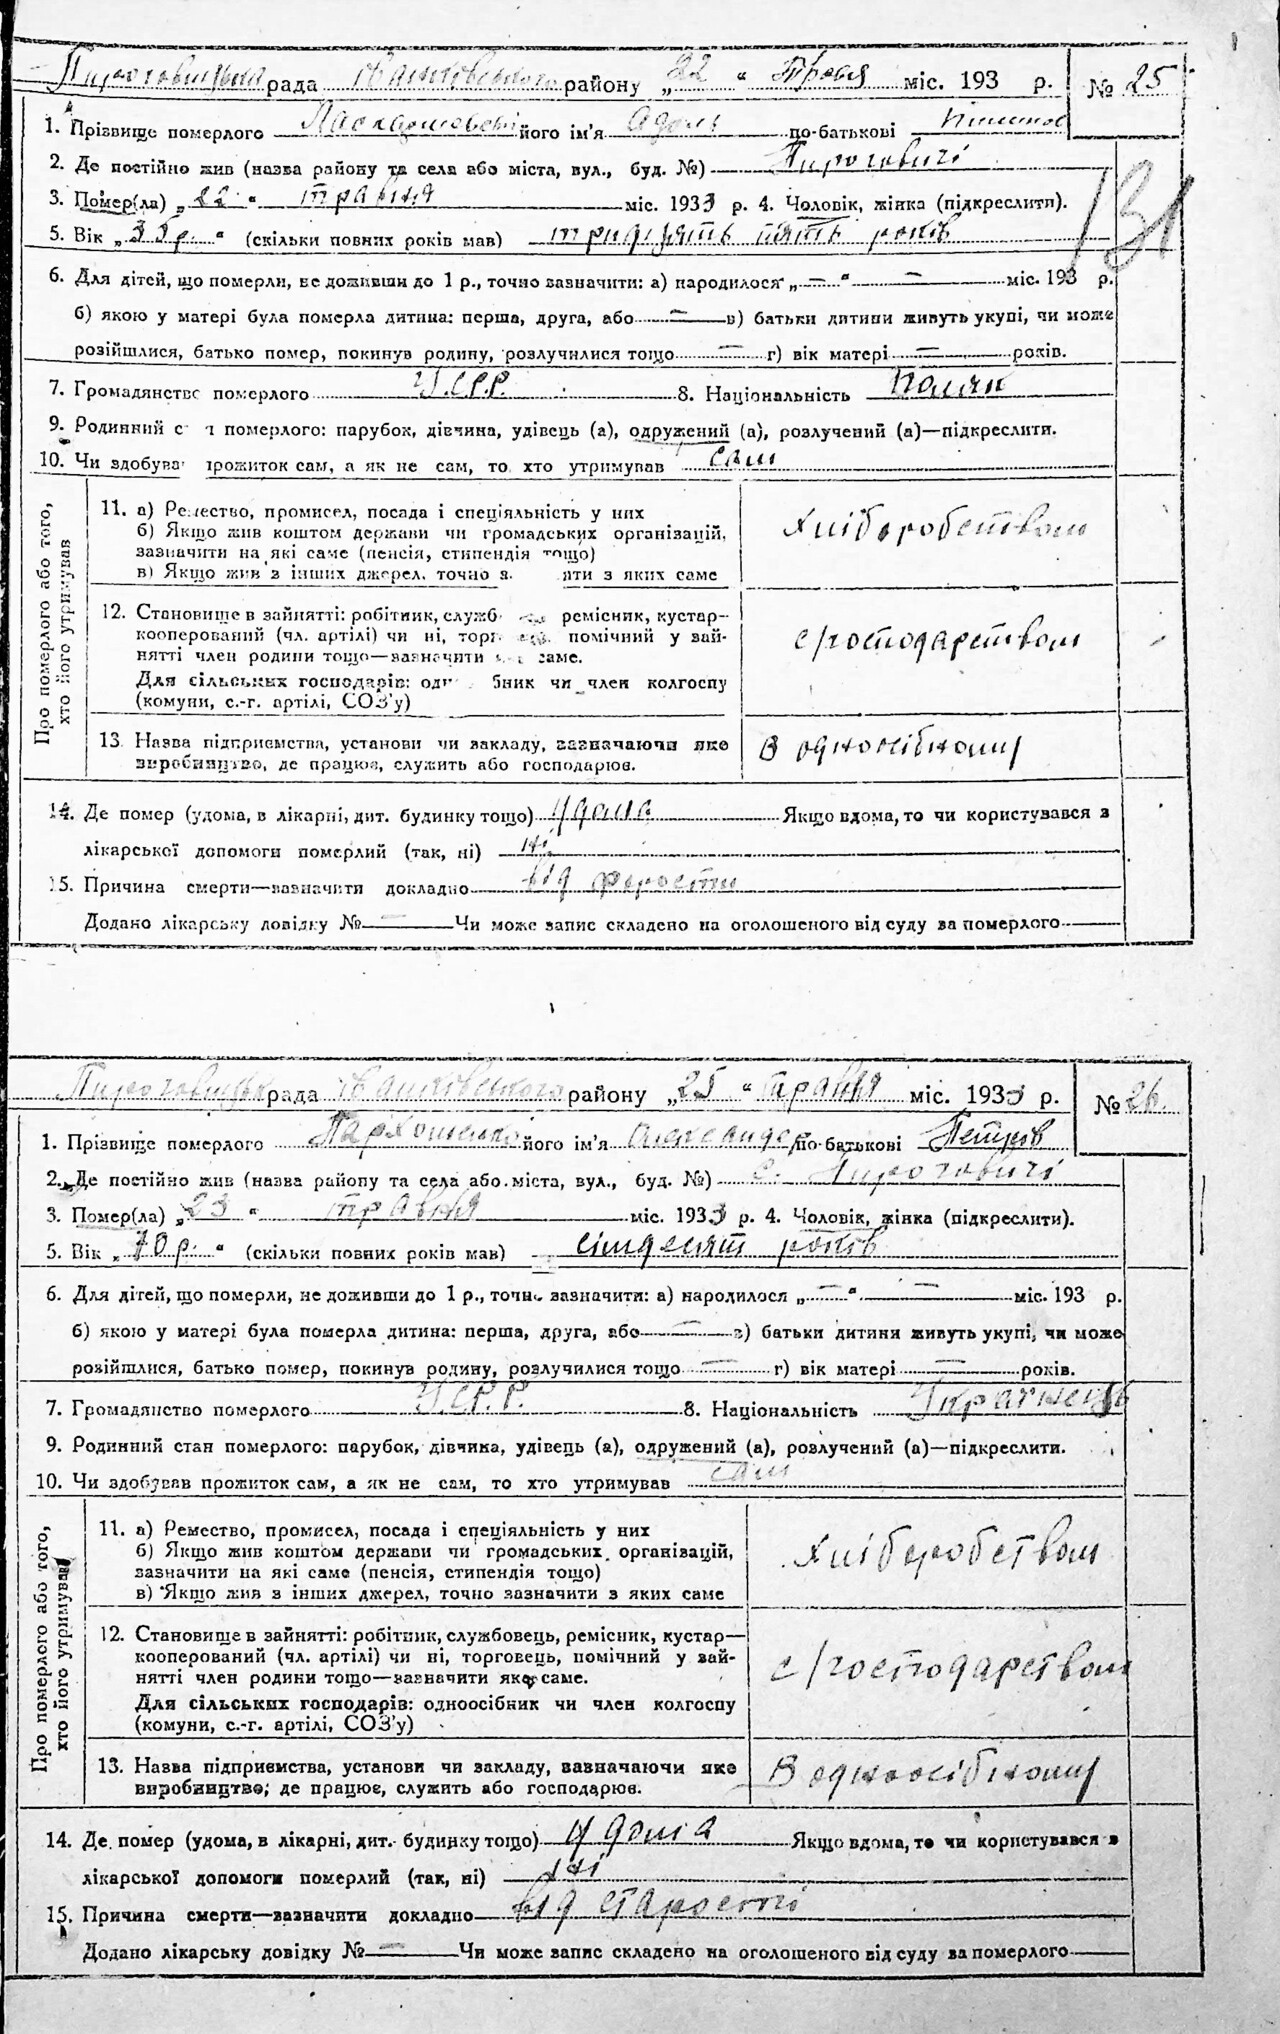 Пироговицька рада Іванківського району „22“ Травня міс. 193 р. № 25
1. Прізвище померлого його ім'я Адоль по-батькові
2. Де постійно жив (назва району та села або міста, вул., буд. №) Пироговичі
3. Помер(ла) „22“ травня міс. 1933 р. 4. Чоловік, жінка (підкреслити).
131
5. Вік „35 р.“ (скільки повних років мав) тридцять пять років
6. Для дітей, що померли, не доживши до 1 р., точно зазначити: а) народилося „—“ — міс. 193 р.
б) якою у матері була померла дитина: перша, друга, або — в) батьки дитини живуть укупі, чи може
розійшлися, батько помер, покинув родину, розлучилися тощо — г) вік матері — років.
7. Громадянство померлого У.С.Р.Р. 8. Національність Поляк
9. Родинний с н померлого: парубок, дівчина, удівець (а), одружений (а), розлучений (а)—підкреслити.
10. Чи здобува прожиток сам, а як не сам, то хто утримував сам
Про померлого або того,
хто його утримував
11. а) Ремество, промисел, посада і спеціяльність у них
б) Якщо жив коштом держави чи громадських організацій,
зазначити на які саме (пенсія, стипендія тощо)
в) Якщо жив з інших джерел, точно з яти з яких саме
Хліборобством
12. Становище в зайнятті: робітник, служб ремісник, кустар-
кооперований (чл. артілі) чи ні, торг помічний у зай-
нятті член родини тощо—зазначити саме.
Для сільських господарів: од бник чи член колгоспу
(комуни, с.-г. артілі, СОЗ'у)
с/господарством
13. Назва підприємства, установи чи закладу, зазначаючи яке
виробництво, де працює, служить або господарює.
В одноосібному
14. Де помер (удома, в лікарні, дит. будинку тощо) удома Якщо вдома, то чи користувався з
лікарської допомоги померлий (так, ні) ні
15. Причина смерти—зазначити докладно від
Додано лікарську довідку № — Чи може запис складено на оголошеного від суду за померлого —
Пироговицька рада Іванківського району „25“ травня міс. 1933 р. № 26.
1. Прізвище померлого Пархоменко його ім'я Олександер по-батькові Петров
2. Де постійно жив (назва району та села або міста, вул., буд. №) с. Пироговичі
3. Помер(ла) „23“ травня міс. 1933 р. 4. Чоловік, жінка (підкреслити).
5. Вік „70 р.“ (скільки повних років мав) сімдесят років
6. Для дітей, що померли, не доживши до 1 р., точно зазначити: а) народилося „—“ — міс. 193 р.
б) якою у матері була померла дитина: перша, друга, або — в) батьки дитини живуть укупі, чи може
розійшлися, батько помер, покинув родину, розлучилися тощо — г) вік матері — років.
7. Громадянство померлого У.С.Р.Р. 8. Національність Українець
9. Родинний стан померлого: парубок, дівчина, удівець (а), одружений (а), розлучений (а)—підкреслити.
10. Чи здобував прожиток сам, а як не сам, то хто утримував сам
Про померлого або того,
хто його утримував
11. а) Ремество, промисел, посада і спеціяльність у них
б) Якщо жив коштом держави чи громадських організацій,
зазначити на які саме (пенсія, стипендія тощо)
в) Якщо жив з інших джерел, точно зазначити з яких саме
Хліборобством
12. Становище в зайнятті: робітник, службовець, ремісник, кустар—
кооперований (чл. артілі) чи ні, торговець, помічний у зай-
нятті член родини тощо—зазначити яке саме.
Для сільських господарів: одноосібник чи член колгоспу
(комуни, с.-г. артілі, СОЗ'у)
с/господарством
13. Назва підприємства, установи чи закладу, зазначаючи яке
виробництво; де працює, служить або господарює.
В одноосібному
14. Де помер (удома, в лікарні, дит. будинку тощо) удома Якщо вдома, то чи користувався з
лікарської допомоги померлий (так, ні) ні
15. Причина смерти—зазначити докладно від старости
Додано лікарську довідку № — Чи може запис складено на оголошеного від суду за померлого —